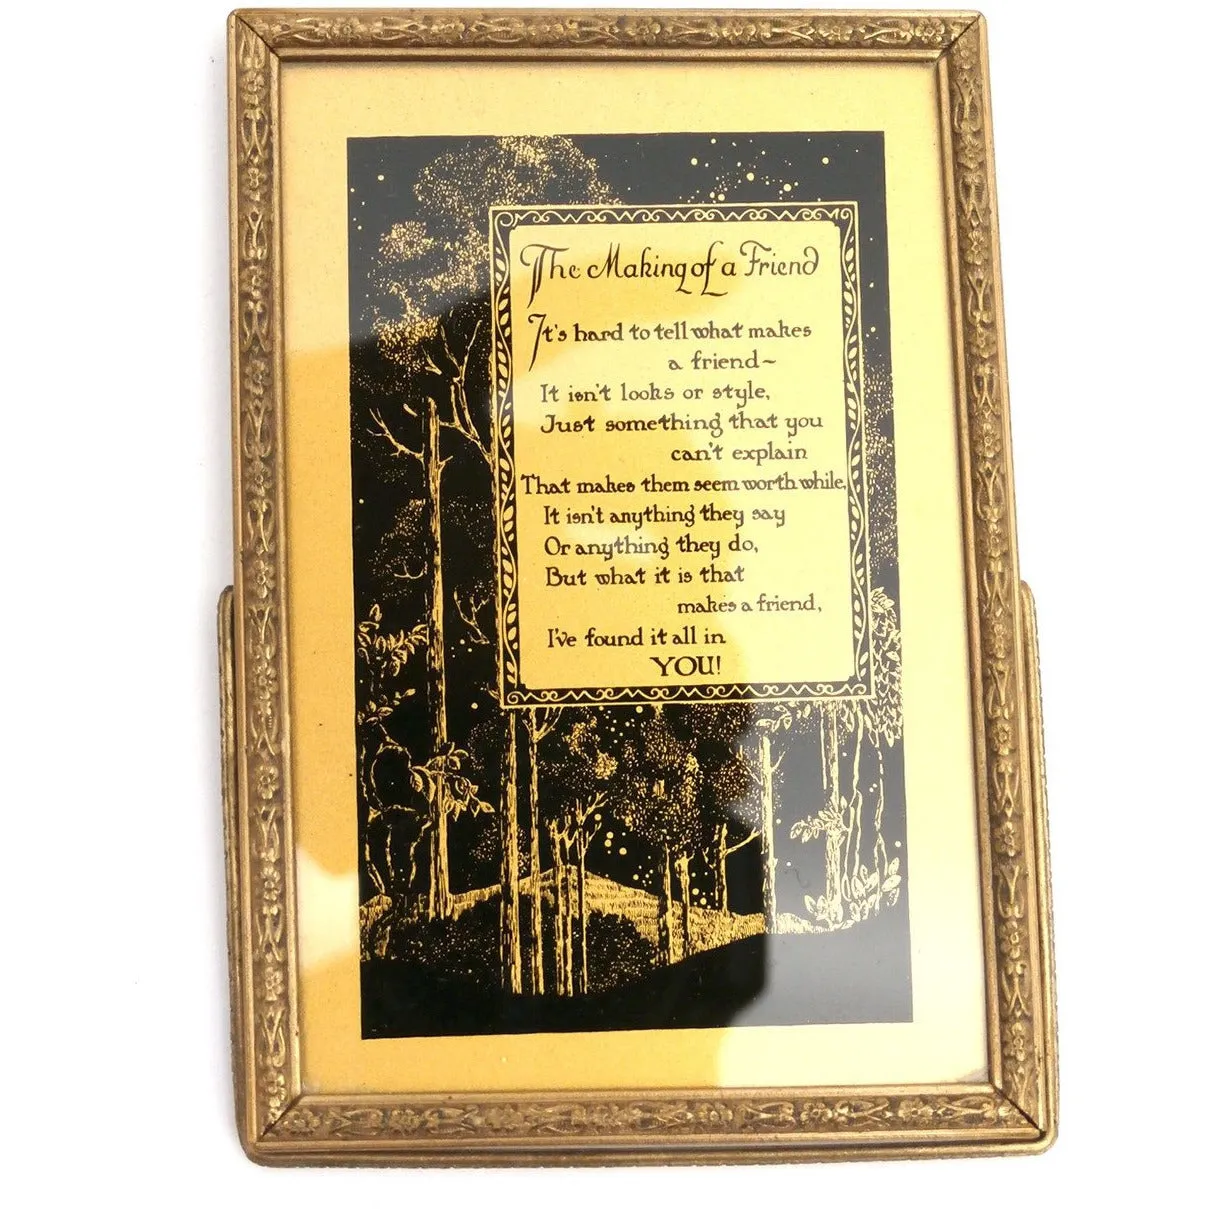 The Making of a Friend
It's hard to tell what makes
a friend~
It isn't looks or style,
Just something that you
can't explain
That makes them seem worth while,
It isn't anything they say
Or anything they do,
But what it is that
makes a friend,
I've found it all in
YOU!